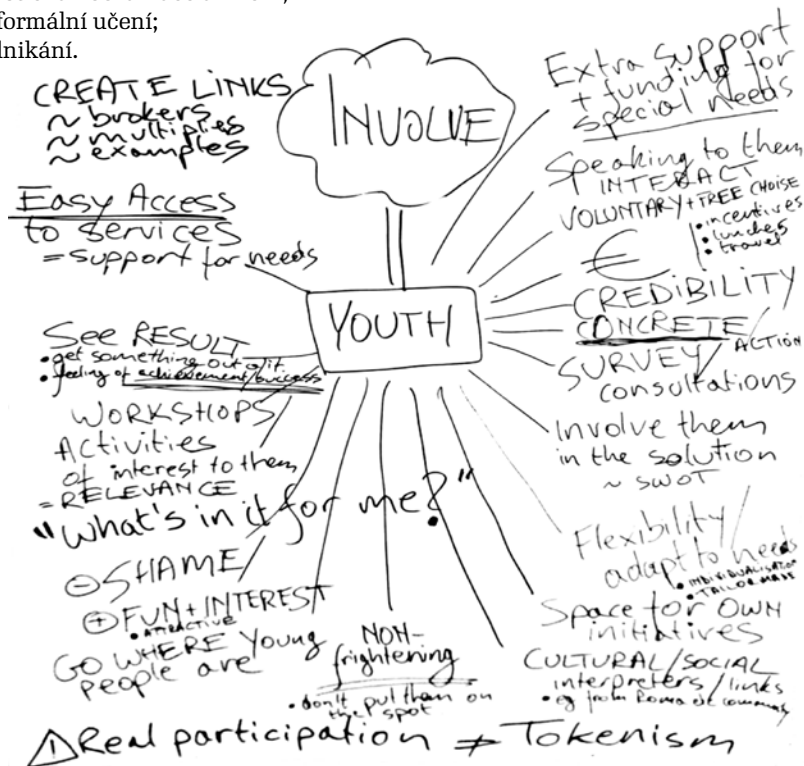 formální učení;
dnikání.
INVOLVE
YOUTH
CREATE LINKS
~ brokers
~ multiplies
~ examples
Easy Access
to services
= support for needs
See RESULT
• get something out of it
• feeling of achievement/success
WORKSHOPS
Activities
of interest to them
= RELEVANCE
"What's in it for me?"
⊖ SHAME
⊕ FUN + INTEREST
• ATTRACTIVE
GO WHERE Young
people are
NON-
frightening
• don't put them on
the spot
Extra support
+ funding for
special needs
Speaking to them
INTERACT
VOLUNTARY + FREE CHOISE
€
• incentives
• lunches
• travel
CREDIBILITY
CONCRETE / ACTION
SURVEY /
consultations
Involve them
in the solution
~ SWOT
Flexibility
adapt to needs
• INDIVIDUALISATION
• TAILOR MADE
Space for OWN
initiatives
CULTURAL/SOCIAL
interpreters / links
• eg from Roma etc
⚠ Real participation ≠ Tokenism